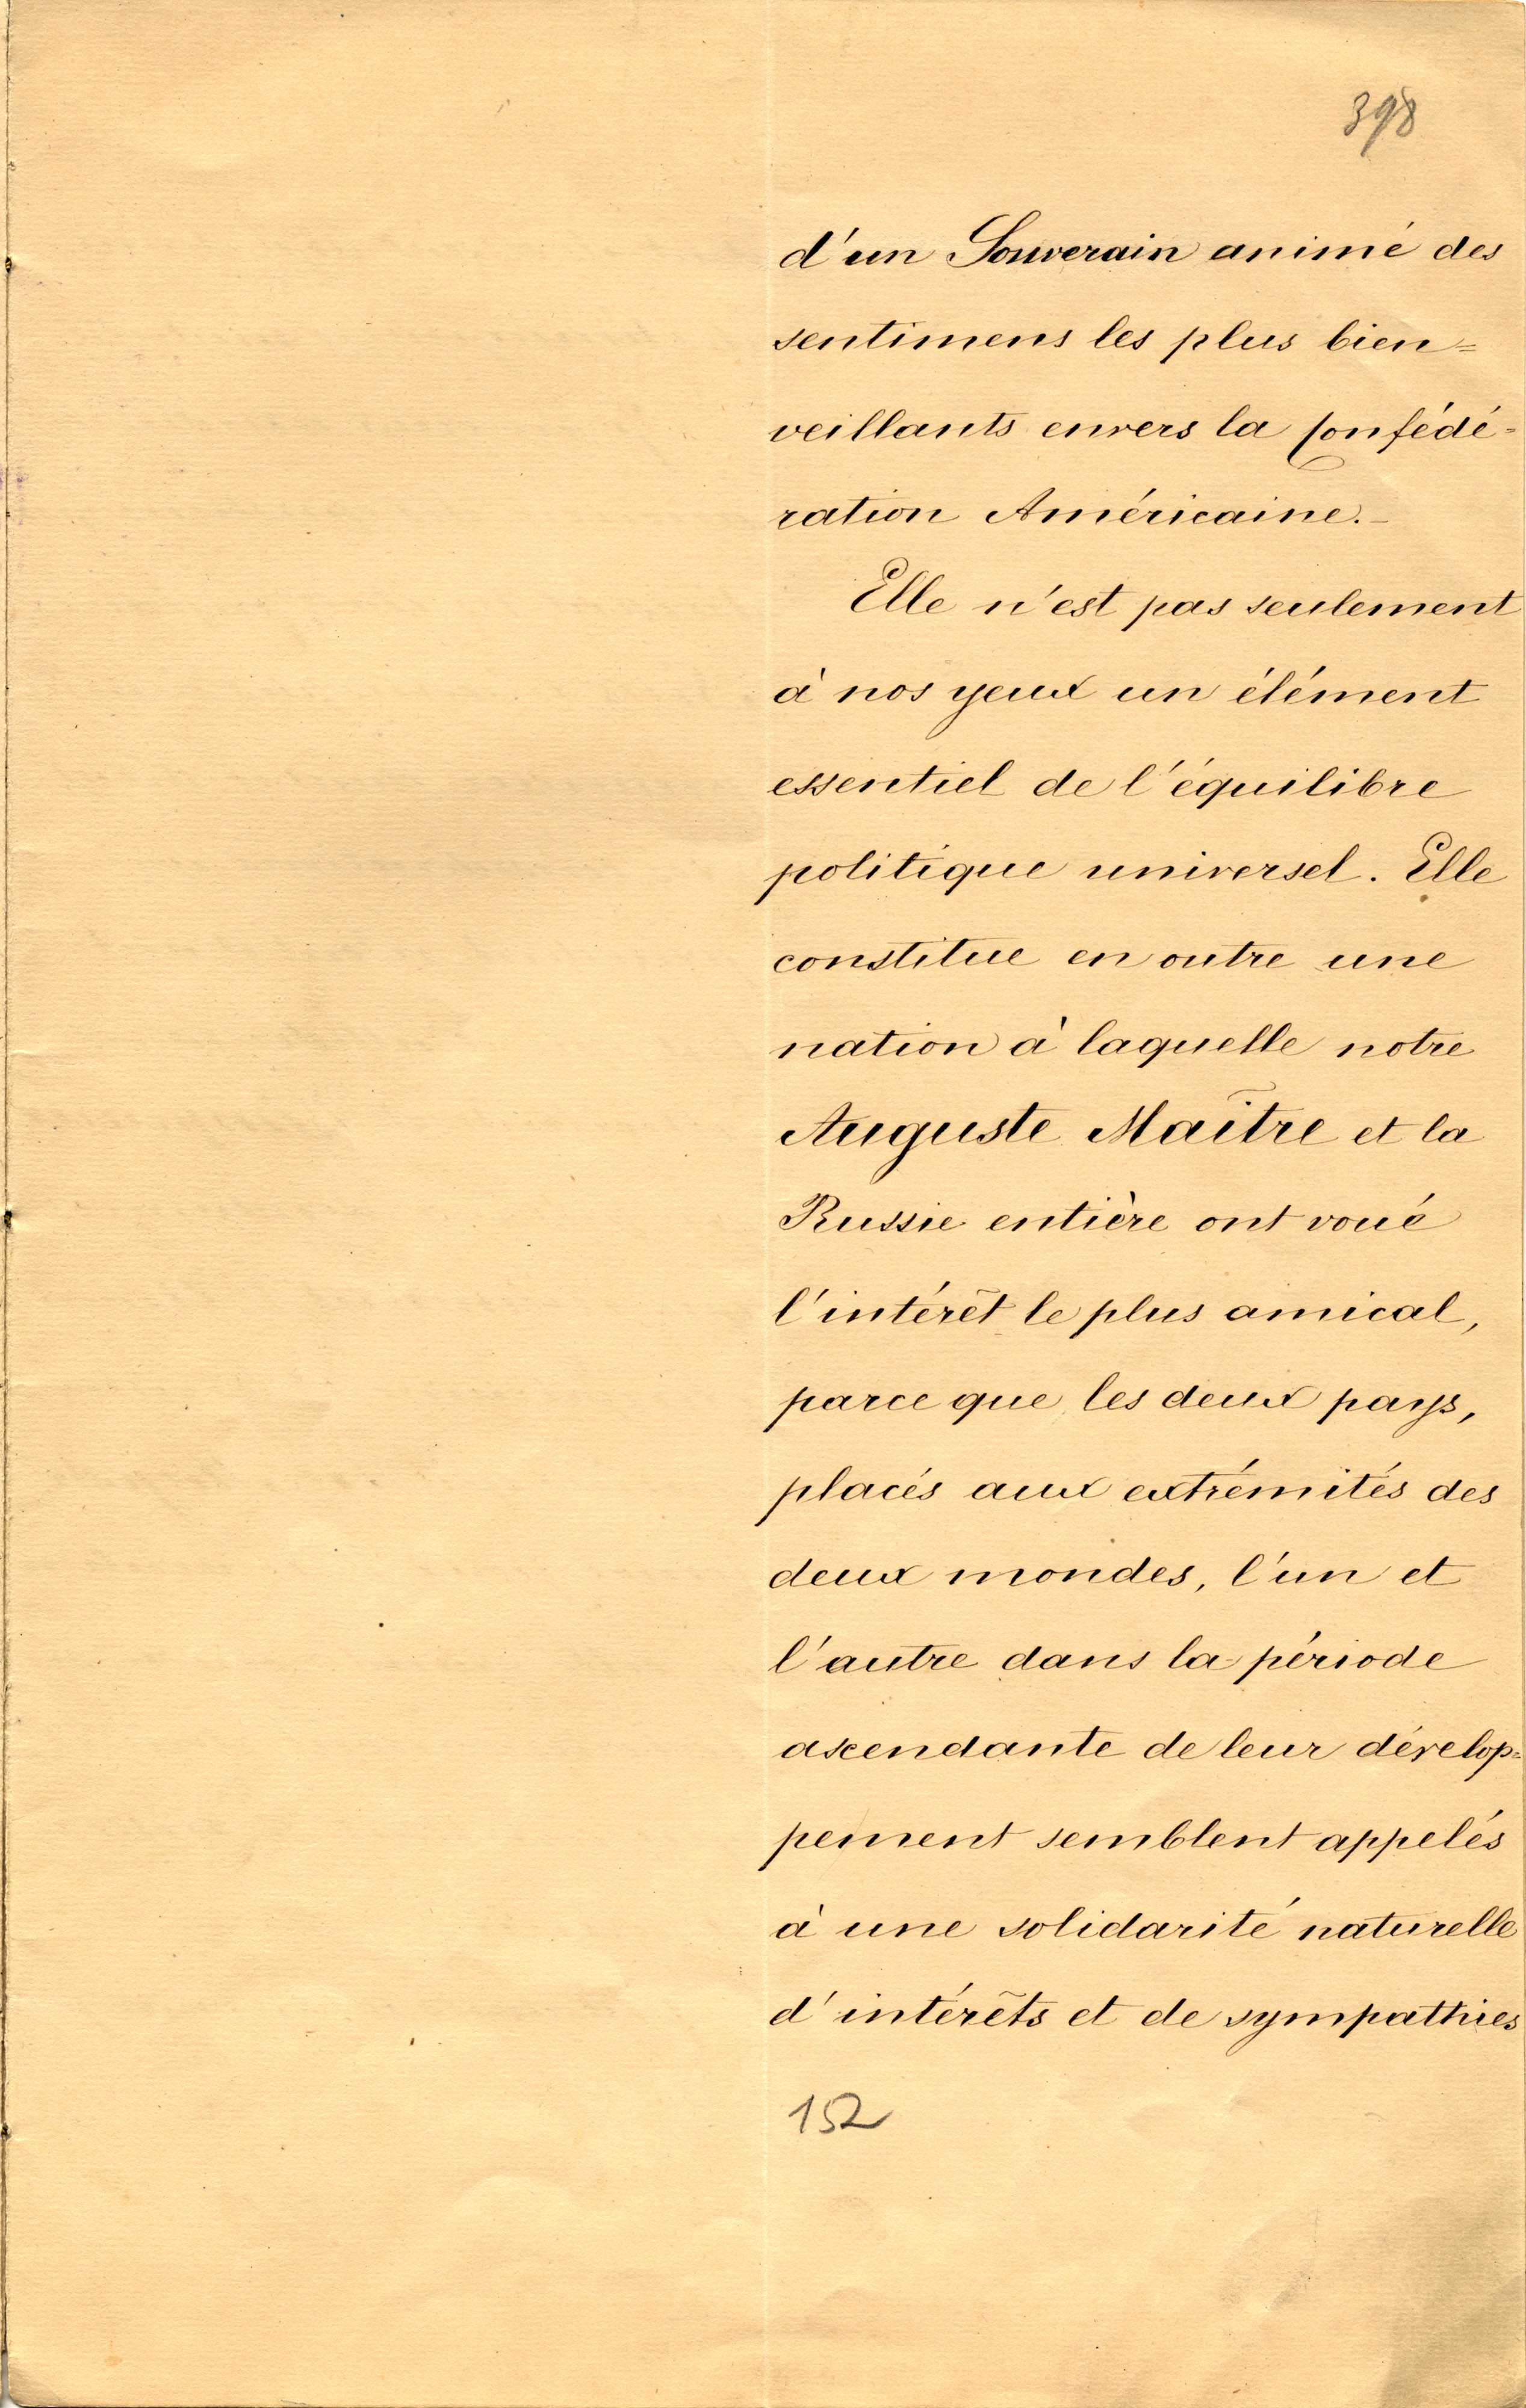 398
d'un Souverain animé des
sentimens les plus bien=
veillants envers la Confédé=
ration Américaine.-
Elle n'est pas seulement
à nos yeux un élément
essentiel de l'équilibre
politique universel. Elle
constitue en outre une
nation à laquelle notre
Auguste Maître et la
Russie entière ont voué
l'intérêt le plus amical,
parce que les deux pays,
placés aux extrémités des
deux mondes, l'un et
l'autre dans la période
ascendante de leur dévelop=
pement semblent appelés
à une solidarité naturelle
d'intérêts et de sympathies
152